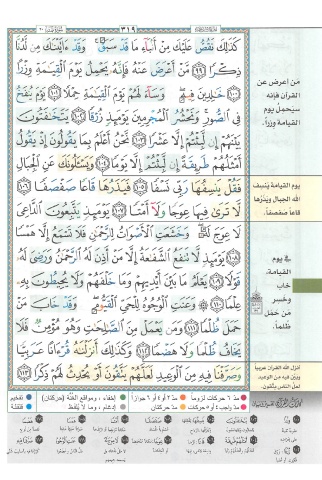 ٣١٩
كَذَٰلِكَ نَقُصُّ عَلَيْكَ مِنْ أَنۢبَآءِ مَا قَدْ سَبَقَ ۚ وَقَدْ ءَاتَيْنَٰكَ مِن لَّدُنَّا
ذِكْرًا ﴿٩٩﴾ مَّنْ أَعْرَضَ عَنْهُ فَإِنَّهُۥ يَحْمِلُ يَوْمَ ٱلْقِيَٰمَةِ وِزْرًا
﴿١٠٠﴾ خَٰلِدِينَ فِيهِ ۖ وَسَآءَ لَهُمْ يَوْمَ ٱلْقِيَٰمَةِ حِمْلًا ﴿١٠١﴾ يَوْمَ يُنفَخُ
فِى ٱلصُّورِ ۚ وَنَحْشُرُ ٱلْمُجْرِمِينَ يَوْمَئِذٍ زُرْقًا ﴿١٠٢﴾ يَتَخَٰفَتُونَ
بَيْنَهُمْ إِن لَّبِثْتُمْ إِلَّا عَشْرًا ﴿١٠٣﴾ نَّحْنُ أَعْلَمُ بِمَا يَقُولُونَ إِذْ يَقُولُ
أَمْثَلُهُمْ طَرِيقَةً إِن لَّبِثْتُمْ إِلَّا يَوْمًا ﴿١٠٤﴾ وَيَسْـَٔلُونَكَ عَنِ ٱلْجِبَالِ
فَقُلْ يَنسِفُهَا رَبِّى نَسْفًا ﴿١٠٥﴾ فَيَذَرُهَا قَاعًا صَفْصَفًا ﴿١٠٦﴾
لَّا تَرَىٰ فِيهَا عِوَجًا وَلَآ أَمْتًا ﴿١٠٧﴾ يَوْمَئِذٍ يَتَّبِعُونَ ٱلدَّاعِىَ
لَا عِوَجَ لَهُۥ ۖ وَخَشَعَتِ ٱلْأَصْوَاتُ لِلرَّحْمَٰنِ فَلَا تَسْمَعُ إِلَّا هَمْسًا
﴿١٠٨﴾ يَوْمَئِذٍ لَّا تَنفَعُ ٱلشَّفَٰعَةُ إِلَّا مَنْ أَذِنَ لَهُ ٱلرَّحْمَٰنُ وَرَضِىَ لَهُۥ
قَوْلًا ﴿١٠٩﴾ يَعْلَمُ مَا بَيْنَ أَيْدِيهِمْ وَمَا خَلْفَهُمْ وَلَا يُحِيطُونَ بِهِۦ
عِلْمًا ﴿١١٠﴾ وَعَنَتِ ٱلْوُجُوهُ لِلْحَىِّ ٱلْقَيُّومِ ۖ وَقَدْ خَابَ مَنْ
حَمَلَ ظُلْمًا ﴿١١١﴾ وَمَن يَعْمَلْ مِنَ ٱلصَّٰلِحَٰتِ وَهُوَ مُؤْمِنٌ فَلَا
يَخَافُ ظُلْمًا وَلَا هَضْمًا ﴿١١٢﴾ وَكَذَٰلِكَ أَنزَلْنَٰهُ قُرْءَانًا عَرَبِيًّا
وَصَرَّفْنَا فِيهِ مِنَ ٱلْوَعِيدِ لَعَلَّهُمْ يَتَّقُونَ أَوْ يُحْدِثُ لَهُمْ ذِكْرًا ﴿١١٣﴾
من أعرض عن
القرآن فإنه
سيحمل يوم
القيامة وزراً.
يوم القيامة ينسف
الله الجبال ويذرها
قاعاً صفصفاً.
في يوم
القيامة،
خاب
وخسر
من حمل
ظلماً.
أنزل الله القرآن عربياً
وبيّن فيه من الوعيد
لعل الناس يتقون.
مدّ ٦ حركات لزوماً
مدّ ٢ أو ٤ أو ٦ جوازاً
إخفاء، ومواقع الغُنّة (حركتان)
تفخيم
مدّ واجب ٤ أو ٥ حركات
مدّ حركتان
إدغام، وما لا يُلفظ
قلقلة